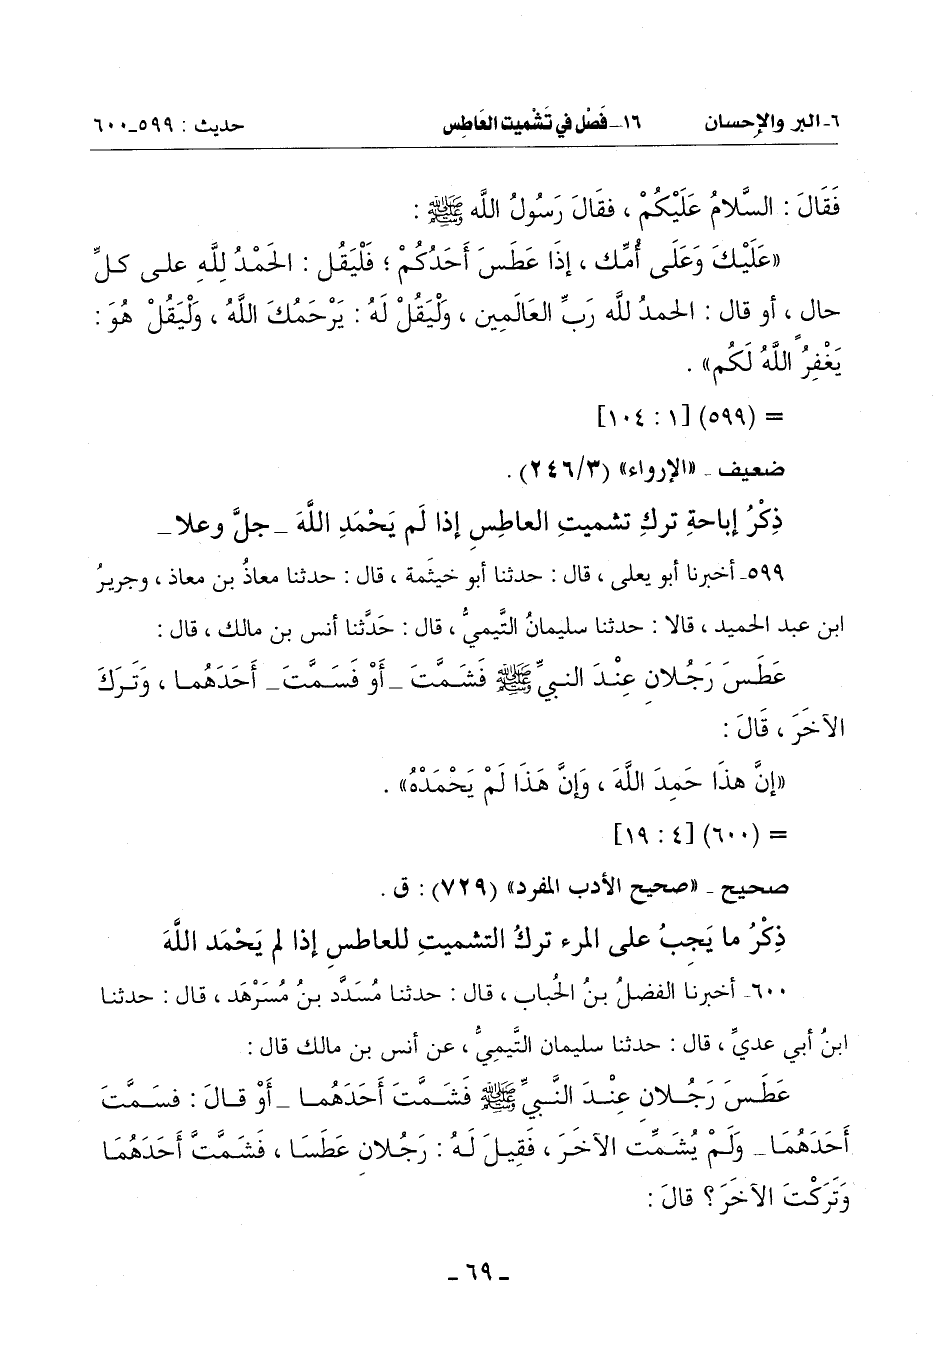 ٦- البر والإحسان ١٦- فَصْل في تَشْميت العَاطِس حديث : ٥٩٩-٦٠٠
فَقَالَ : السَّلامُ عَلَيْكُمْ ، فقَالَ رَسُولُ اللَّه ﷺ :
«عَلَيْكَ وَعَلَى أُمِّك ، إذَا عَطَسَ أَحَدُكُمْ ؛ فَلْيَقُل : الحَمْدُ لِلَّهِ على كلِّ
حال ، أو قال : الحمدُ للَّه رَبِّ العَالَمِين ، وَلْيَقُلْ لَهُ : يَرْحَمُكَ اللَّهُ ، وَلْيَقُلْ هُوَ :
يَغْفِرُ اللَّهُ لَكُم» .
= (٥٩٩) [١ : ١٠٤]
ضعيف - «الإرواء» (٣/٢٤٦) .
ذِكْرُ إباحةِ تركِ تشميتِ العاطِسِ إذا لَم يَحْمَدِ اللَّهَ -جلَّ وعلا-
٥٩٩- أخبرنا أبو يعلى ، قال : حدثنا أبو خيثمة ، قال : حدثنا معاذُ بن معاذ ، وجريرُ
ابن عبد الحميد ، قالا : حدثنا سليمانُ التَّيميُّ ، قال : حَدَّثنا أنس بن مالك ، قال :
عَطَسَ رَجُلانِ عِنْدَ النبيِّ ﷺ فَشَمَّتَ -أَوْ فَسَمَّتَ- أَحَدَهُما ، وَتَرَكَ
الآخَرَ ، قَالَ :
«إنَّ هذَا حَمِدَ اللَّهَ ، وَإنَّ هَذَا لَمْ يَحْمَدْهُ» .
= (٦٠٠) [٤ : ١٩]
صحيح - «صحيح الأدب المفرد» (٧٢٩) : ق .
ذِكْرُ ما يَجِبُ على المرء تركُ التشميتِ للعاطسِ إذا لم يَحْمَد اللَّهَ
٦٠٠- أخبرنا الفضلُ بنُ الحُباب ، قال : حدثنا مُسَدَّد بنُ مُسَرْهَد ، قال : حدثنا
ابنُ أبي عديٍّ ، قال : حدثنا سليمان التَّيميُّ ، عن أنس بن مالك قال :
عَطَسَ رَجُلانِ عِنْدَ النَّبيِّ ﷺ فَشَمَّتَ أَحَدَهُما -أَوْ قالَ : فسَمَّتَ
أَحَدَهُمَا- وَلَمْ يُشَمِّت الآخَرَ ، فَقِيلَ لَهُ : رَجُلانِ عَطَسَا ، فَشَمَّتَّ أَحَدَهُمَا
وَتَرَكْتَ الآخَرَ ؟ قالَ :
- ٦٩ -